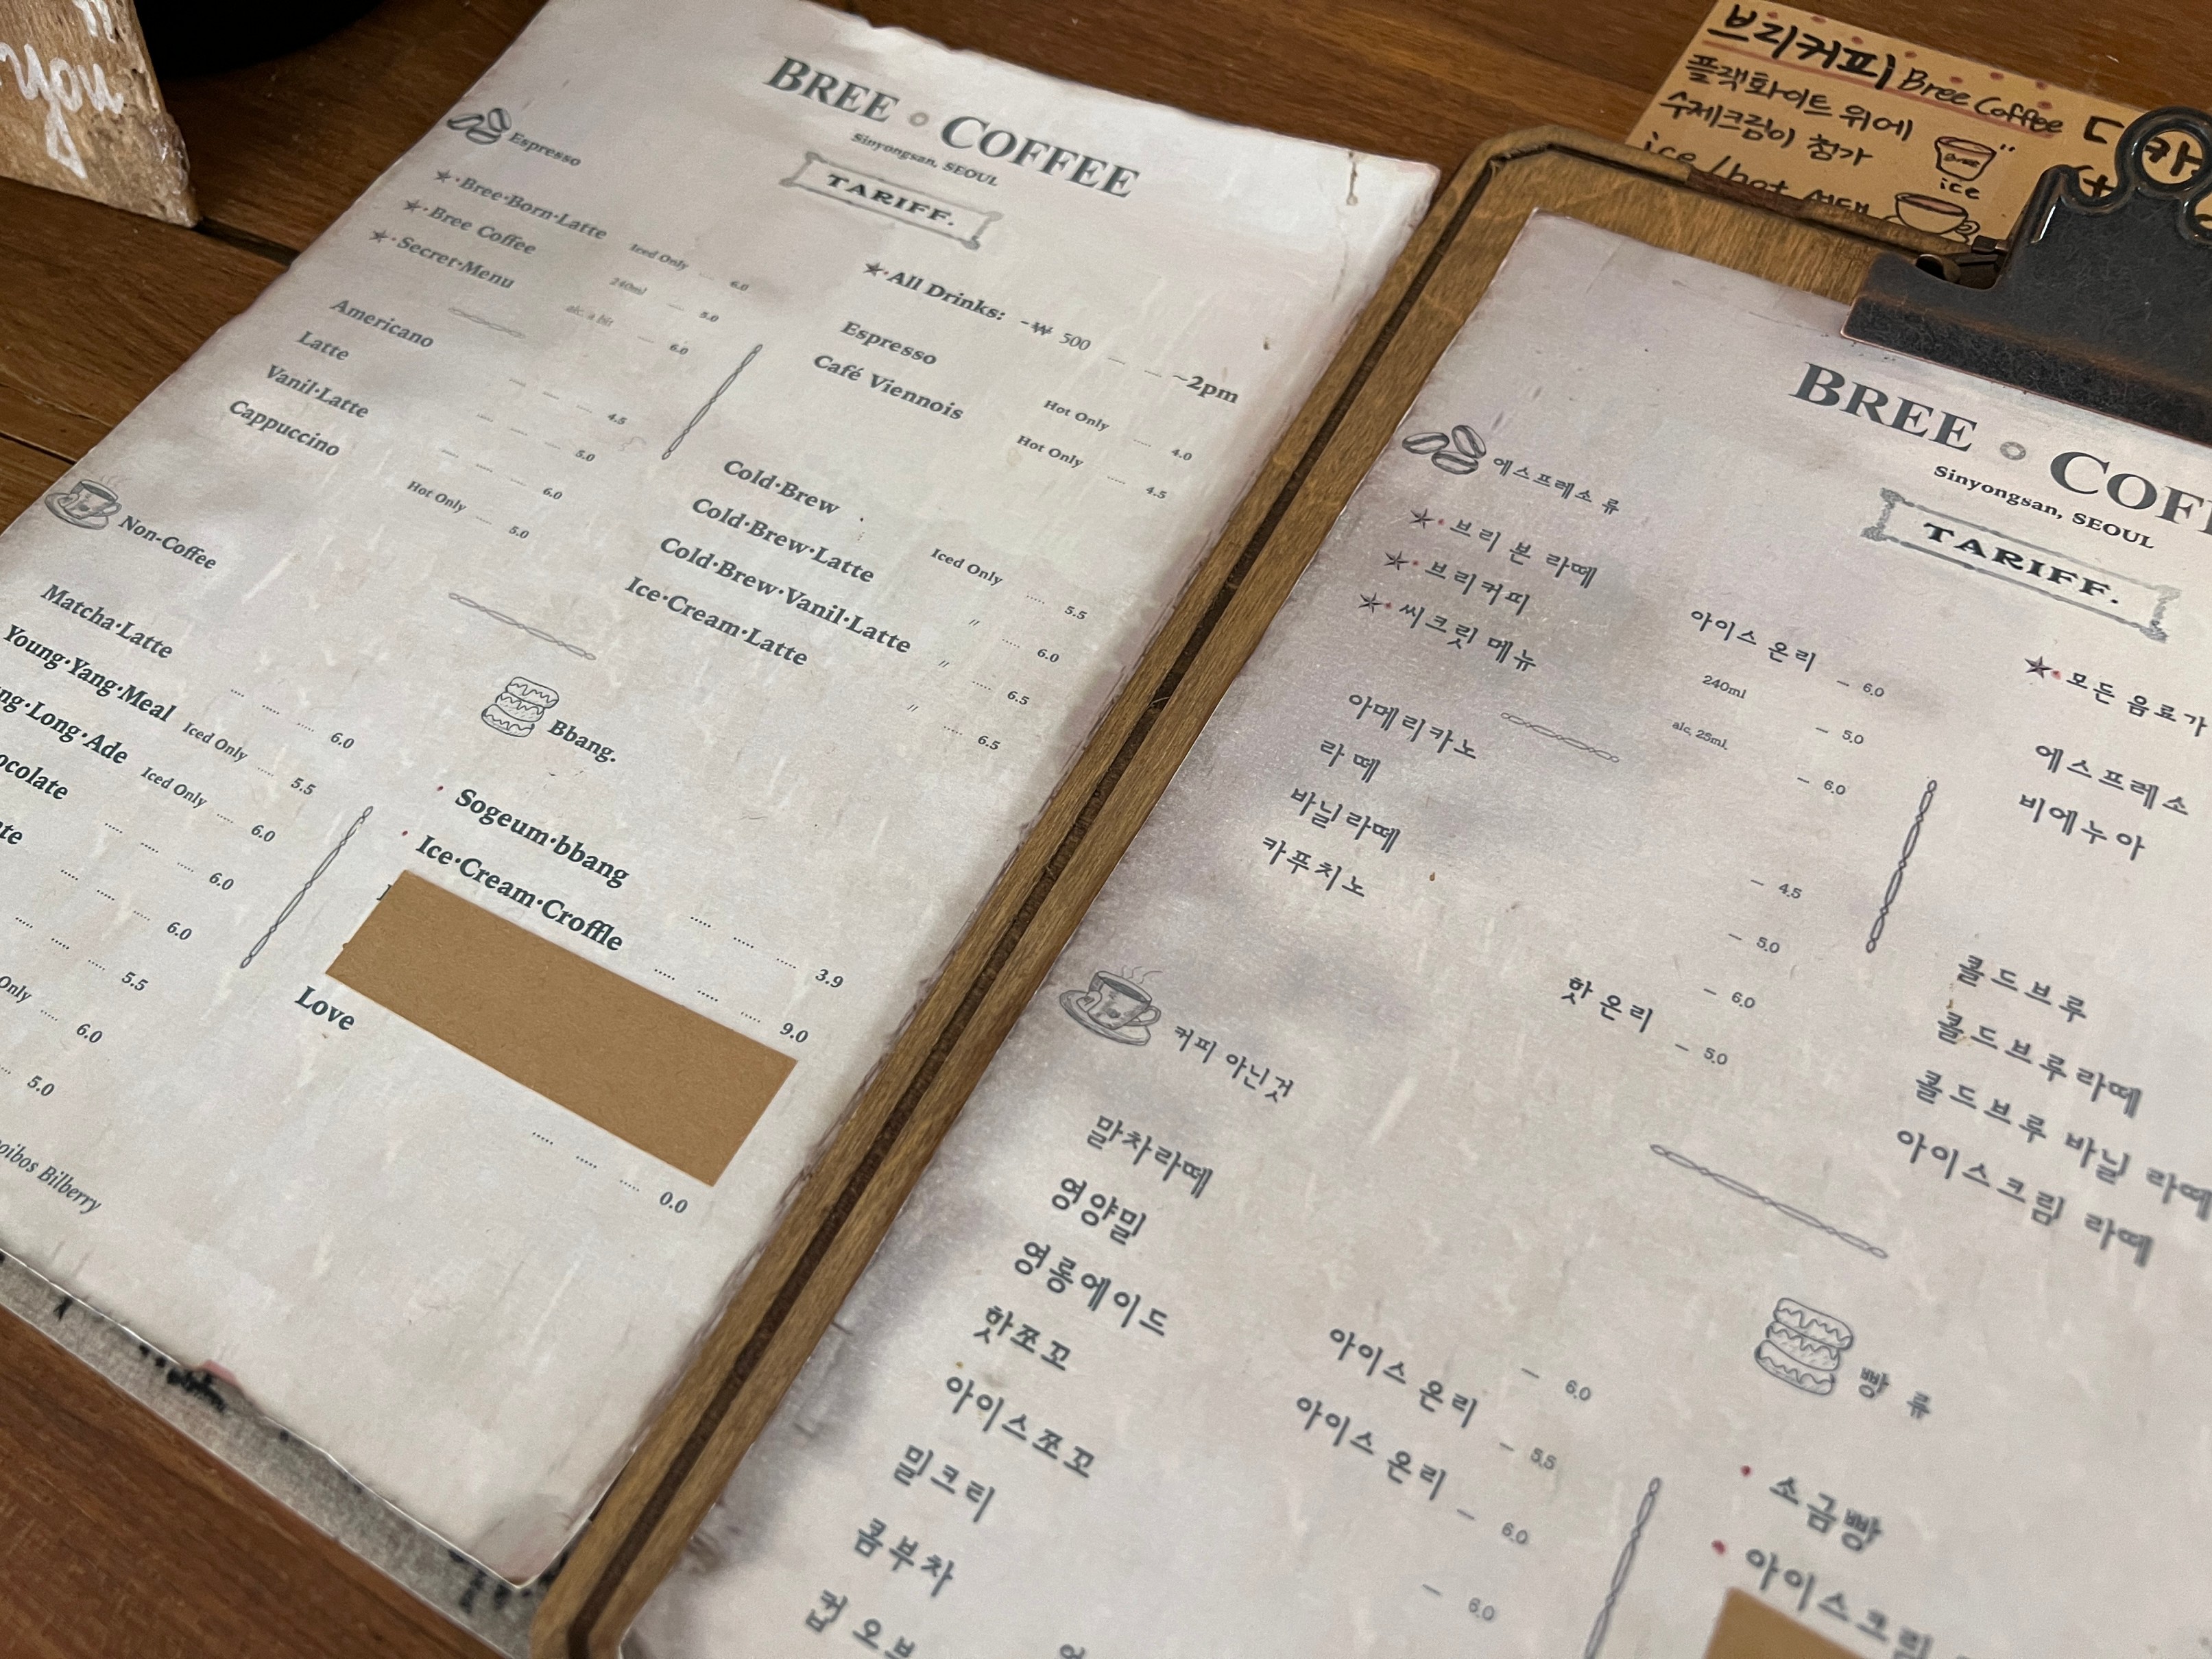 you
BREE COFFEE
Sinyongsan, SEOUL
TARIFF.
Espresso
Bree·Born·Latte Iced Only 6.0
Bree Coffee 240ml 5.0
Secret·Menu alc. a bit 6.0
Americano 4.5
Latte 5.0
Vanil·Latte 6.0
Cappuccino Hot Only 5.0
All Drinks: -₩ 500 ~2pm
Espresso Hot Only 4.0
Café Viennois Hot Only 4.5
Cold·Brew Iced Only 5.5
Cold·Brew·Latte 〃 6.0
Cold·Brew·Vanil·Latte 〃 6.5
Ice·Cream·Latte 〃 6.5
Non-Coffee
Matcha·Latte 6.0
Young·Yang·Meal Iced Only 5.5
ng·Long·Ade Iced Only 6.0
ocolate 6.0
te 6.0
5.5
Only 6.0
5.0
oibos Bilberry
Bbang.
Sogeum·bbang 3.9
Ice·Cream·Croffle 9.0
Love 0.0
브리커피 Bree Coffee
플랫화이트 위에
수제크림이 첨가
ice / hot 선택
ice
BREE COF
Sinyongsan, SEOUL
TARIFF.
에스프레소 류
브리 본 라떼 아이스 온리 6.0
브리커피 240ml 5.0
씨크릿 메뉴 alc, 25ml. 6.0
아메리카노 4.5
라떼 5.0
바닐라떼 6.0
카푸치노 핫 온리 5.0
모든 음료가
에스프레소
비에누아
콜드브루
콜드브루라떼
콜드브루 바닐 라떼
아이스크림 라떼
커피 아닌것
말차라떼 6.0
영양밀 아이스 온리 5.5
영롱에이드 아이스 온리 6.0
핫쪼꼬 6.0
아이스쪼꼬
밀크티
콤부차
컵 오브
빵 류
소금빵
아이스크림